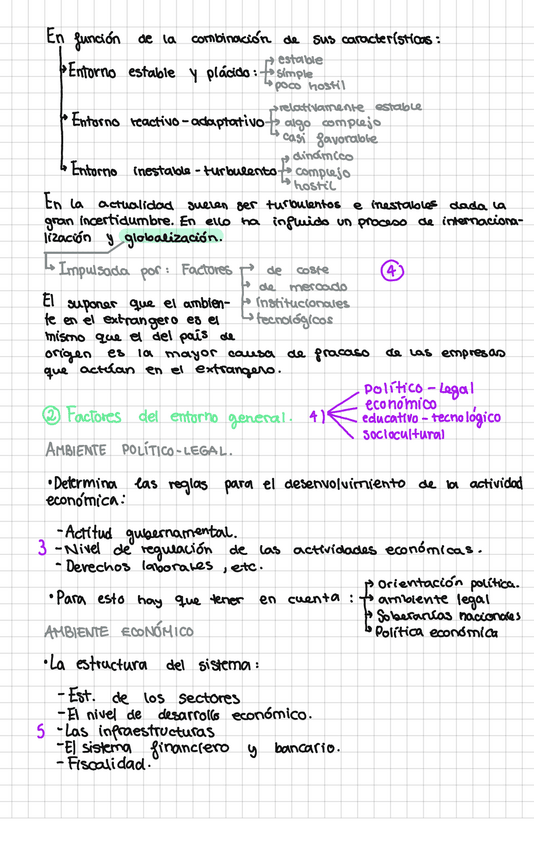 En función de la combinación de sus características:
Entorno estable y plácido: estable
simple
poco hostil
Entorno reactivo-adaptativo relativamente estable
algo complejo
casi favorable
Entorno inestable-turbulento dinámico
complejo
hostil
En la actualidad suelen ser turbulentos e inestables dada la
gran incertidumbre. En ello ha influido un proceso de internaciona-
lización y globalización.
Impulsada por: Factores de coste
de mercado
institucionales
tecnológicos
4
El suponer que el ambien-
te en el extrangero es el
mismo que el del país de
origen es la mayor causa de fracaso de las empresas
que actúan en el extrangero.
2 Factores del entorno general. 4) político-legal
económico
educativo-tecnológico
sociocultural
AMBIENTE POLÍTICO-LEGAL.
•Determina las reglas para el desenvolvimiento de la actividad
económica:
-Actitud gubernamental.
3 -Nivel de regulación de las actividades económicas.
-Derechos laborales, etc.
•Para esto hay que tener en cuenta: orientación política.
ambiente legal
Soberanías nacionales
Política económica
AMBIENTE ECONÓMICO
•La estructura del sistema:
-Est. de los sectores
-El nivel de desarrollo económico.
5 -Las infraestructuras
-El sistema financiero y bancario.
-Fiscalidad.